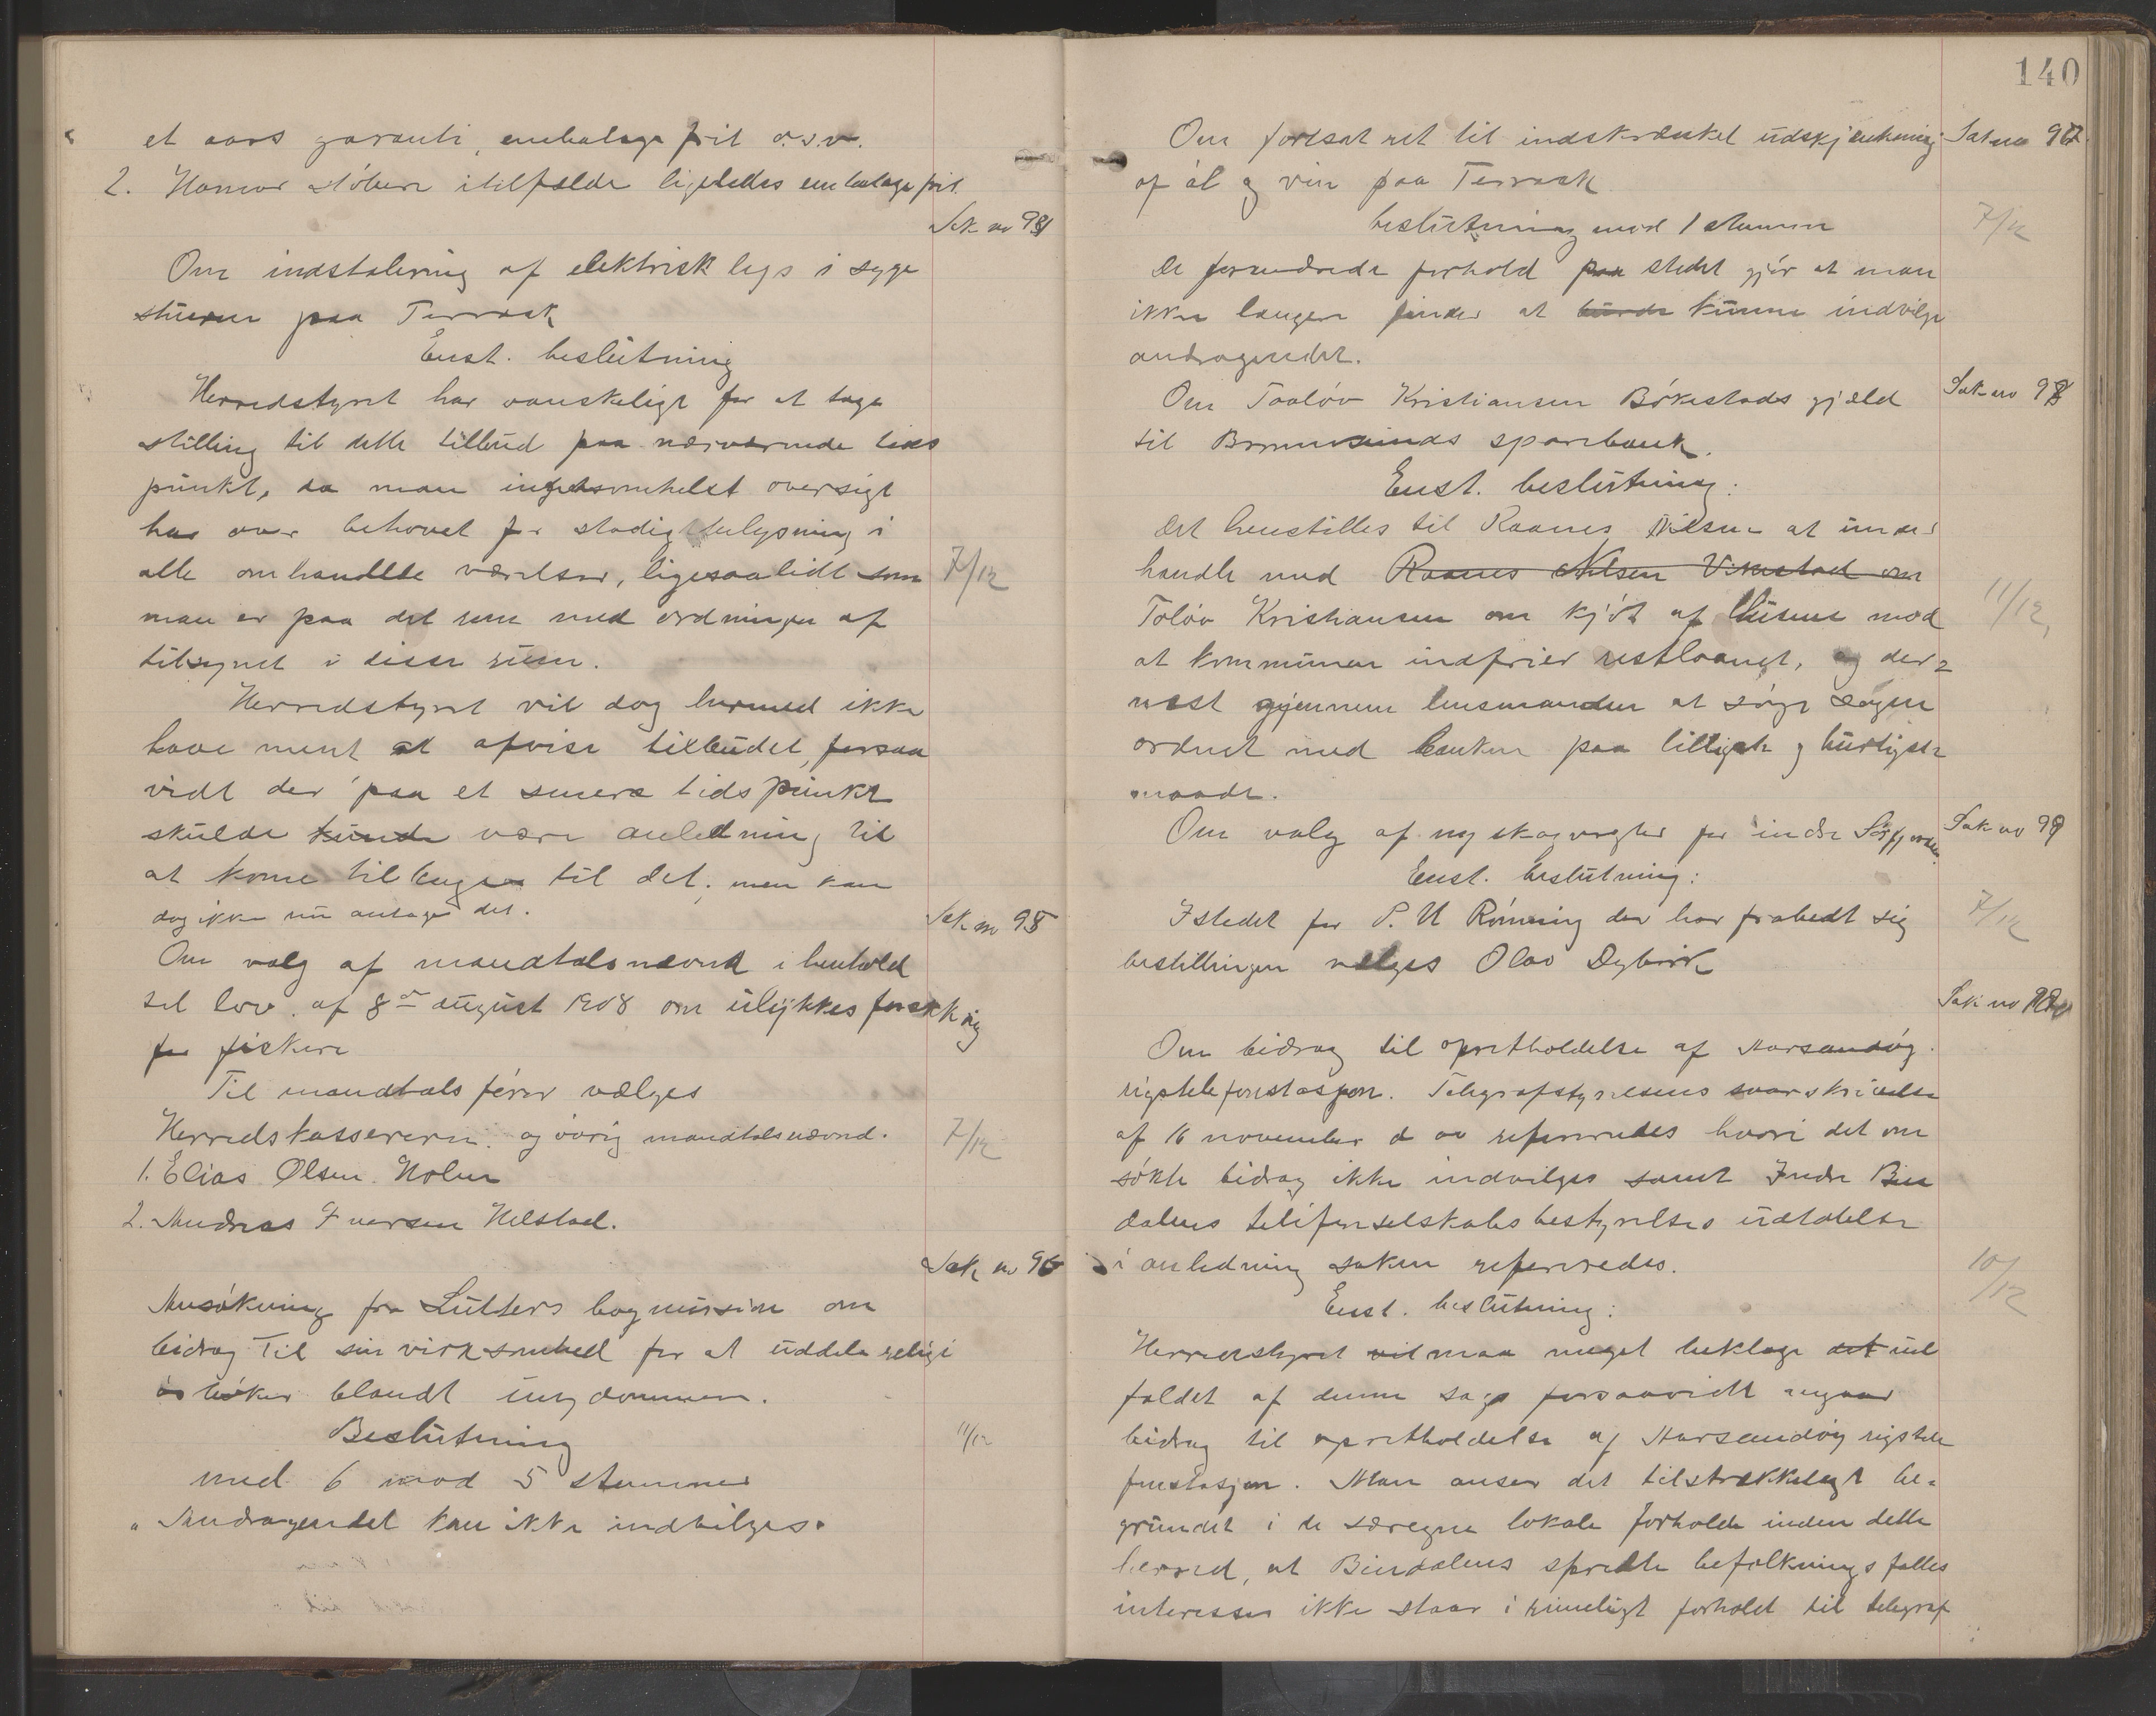 et aars garanti, embalage frit o.s.v.
2. Hamar støberi itilfælde ligeledes embalage frit.
Sak no 94
Om indstalering af elektrisk lys i syge
stuerne paa Terraak
Enst. beslutning
Herredstyret har vanskeligt for at tage
stilling til dette tilbud paa nærværende tids
punkt, da man ingensomhelst oversigt
har over behovet for stadig belysning i
alle omhandlede værelser, ligesaalidt som
7/12
man er paa det rene med ordningen af
tilsynet i disse rum.
Herredstyret vil dog hermed ikke
have ment at afvise tilbudet, forsaa
vidt der paa et senere tidspunkt
skulde kunde være anledning til
at kome tilbage til det, men kan
dog ikke nu antage det.
Sak no 95
Om valg af mandtalsnævnd i henhold
til lov af 8de august 1908 om ulykkesforsikring
for fiskere
Til mandtalsfører vælges
Herredskassereren og øvrig mandtalsnævnd.
7/12
1. Elias Olsen Holm
2. Andreas Iversen Helstad.
Sak no 96
Ansøkning fra Luthers bogmission om
bidrag til sin virksomhed for at uddele religi
øs bøker blandt ungdommen.
Beslutning
11/12
med 6 mod 5 stemmer
"Andragendet kan ikke indvilges"
140
Om fortsat ret til indskrænket udskjænkning
Sak no 97
af øl og vin paa Terraak
beslutning mod 1 stemme
7/12
De forandrede forhold paa stedet gjør at man
ikke længere finder at burde kunne indvilge
andragendet.
Om Taaløv Kristiansen Bøkestads gjæld
Sak no 98
til Brønnøsunds sparebank.
Enst. beslutning:
Det henstilles til Raanes Nilsen at under
handle med Raanes Nilsen Vikestad om
11/12
Toløv Kristiansen om kjøb af husene mod
at kommunen indfrier restlaanet, og der=
næst gjennem lensmanden at søge sagen
ordnet med banken paa billigste og hurtigste
maade.
Om valg af ny skogvogter for indre Sørfjorden
Sak no 99
Enst. beslutning:
Istedet for P. A Rønning der har frabedt sig
7/12
bestillingen vælges Olav Dybvik
Sak no 100
Om bidrag til opretholdelse af Harsandøy
rigstelefonstasjon. Telegrafstyrelsens svarskrivelse
af 16 november d aa refereredes hvori det om
søkte bidrag ikke indvilges samt Indre Bin
dalens telefonselskabs bestyrelses udtalelse
i anledning saken refereredes.
10/12
Enst. beslutning:
Herredstyret vil maa meget beklage det ud
faldet af denne sag forsaavidt angaar
bidrag til opretholdelse af Harsandøy rigstele
fonstasjon. Man anser det tilstrækkeligt be=
grundet i de særegne lokale forholde inden dette
herred, at Bindalens spredte befolknings fælles
interesser ikke staar i rimeligt forhold til telegraf